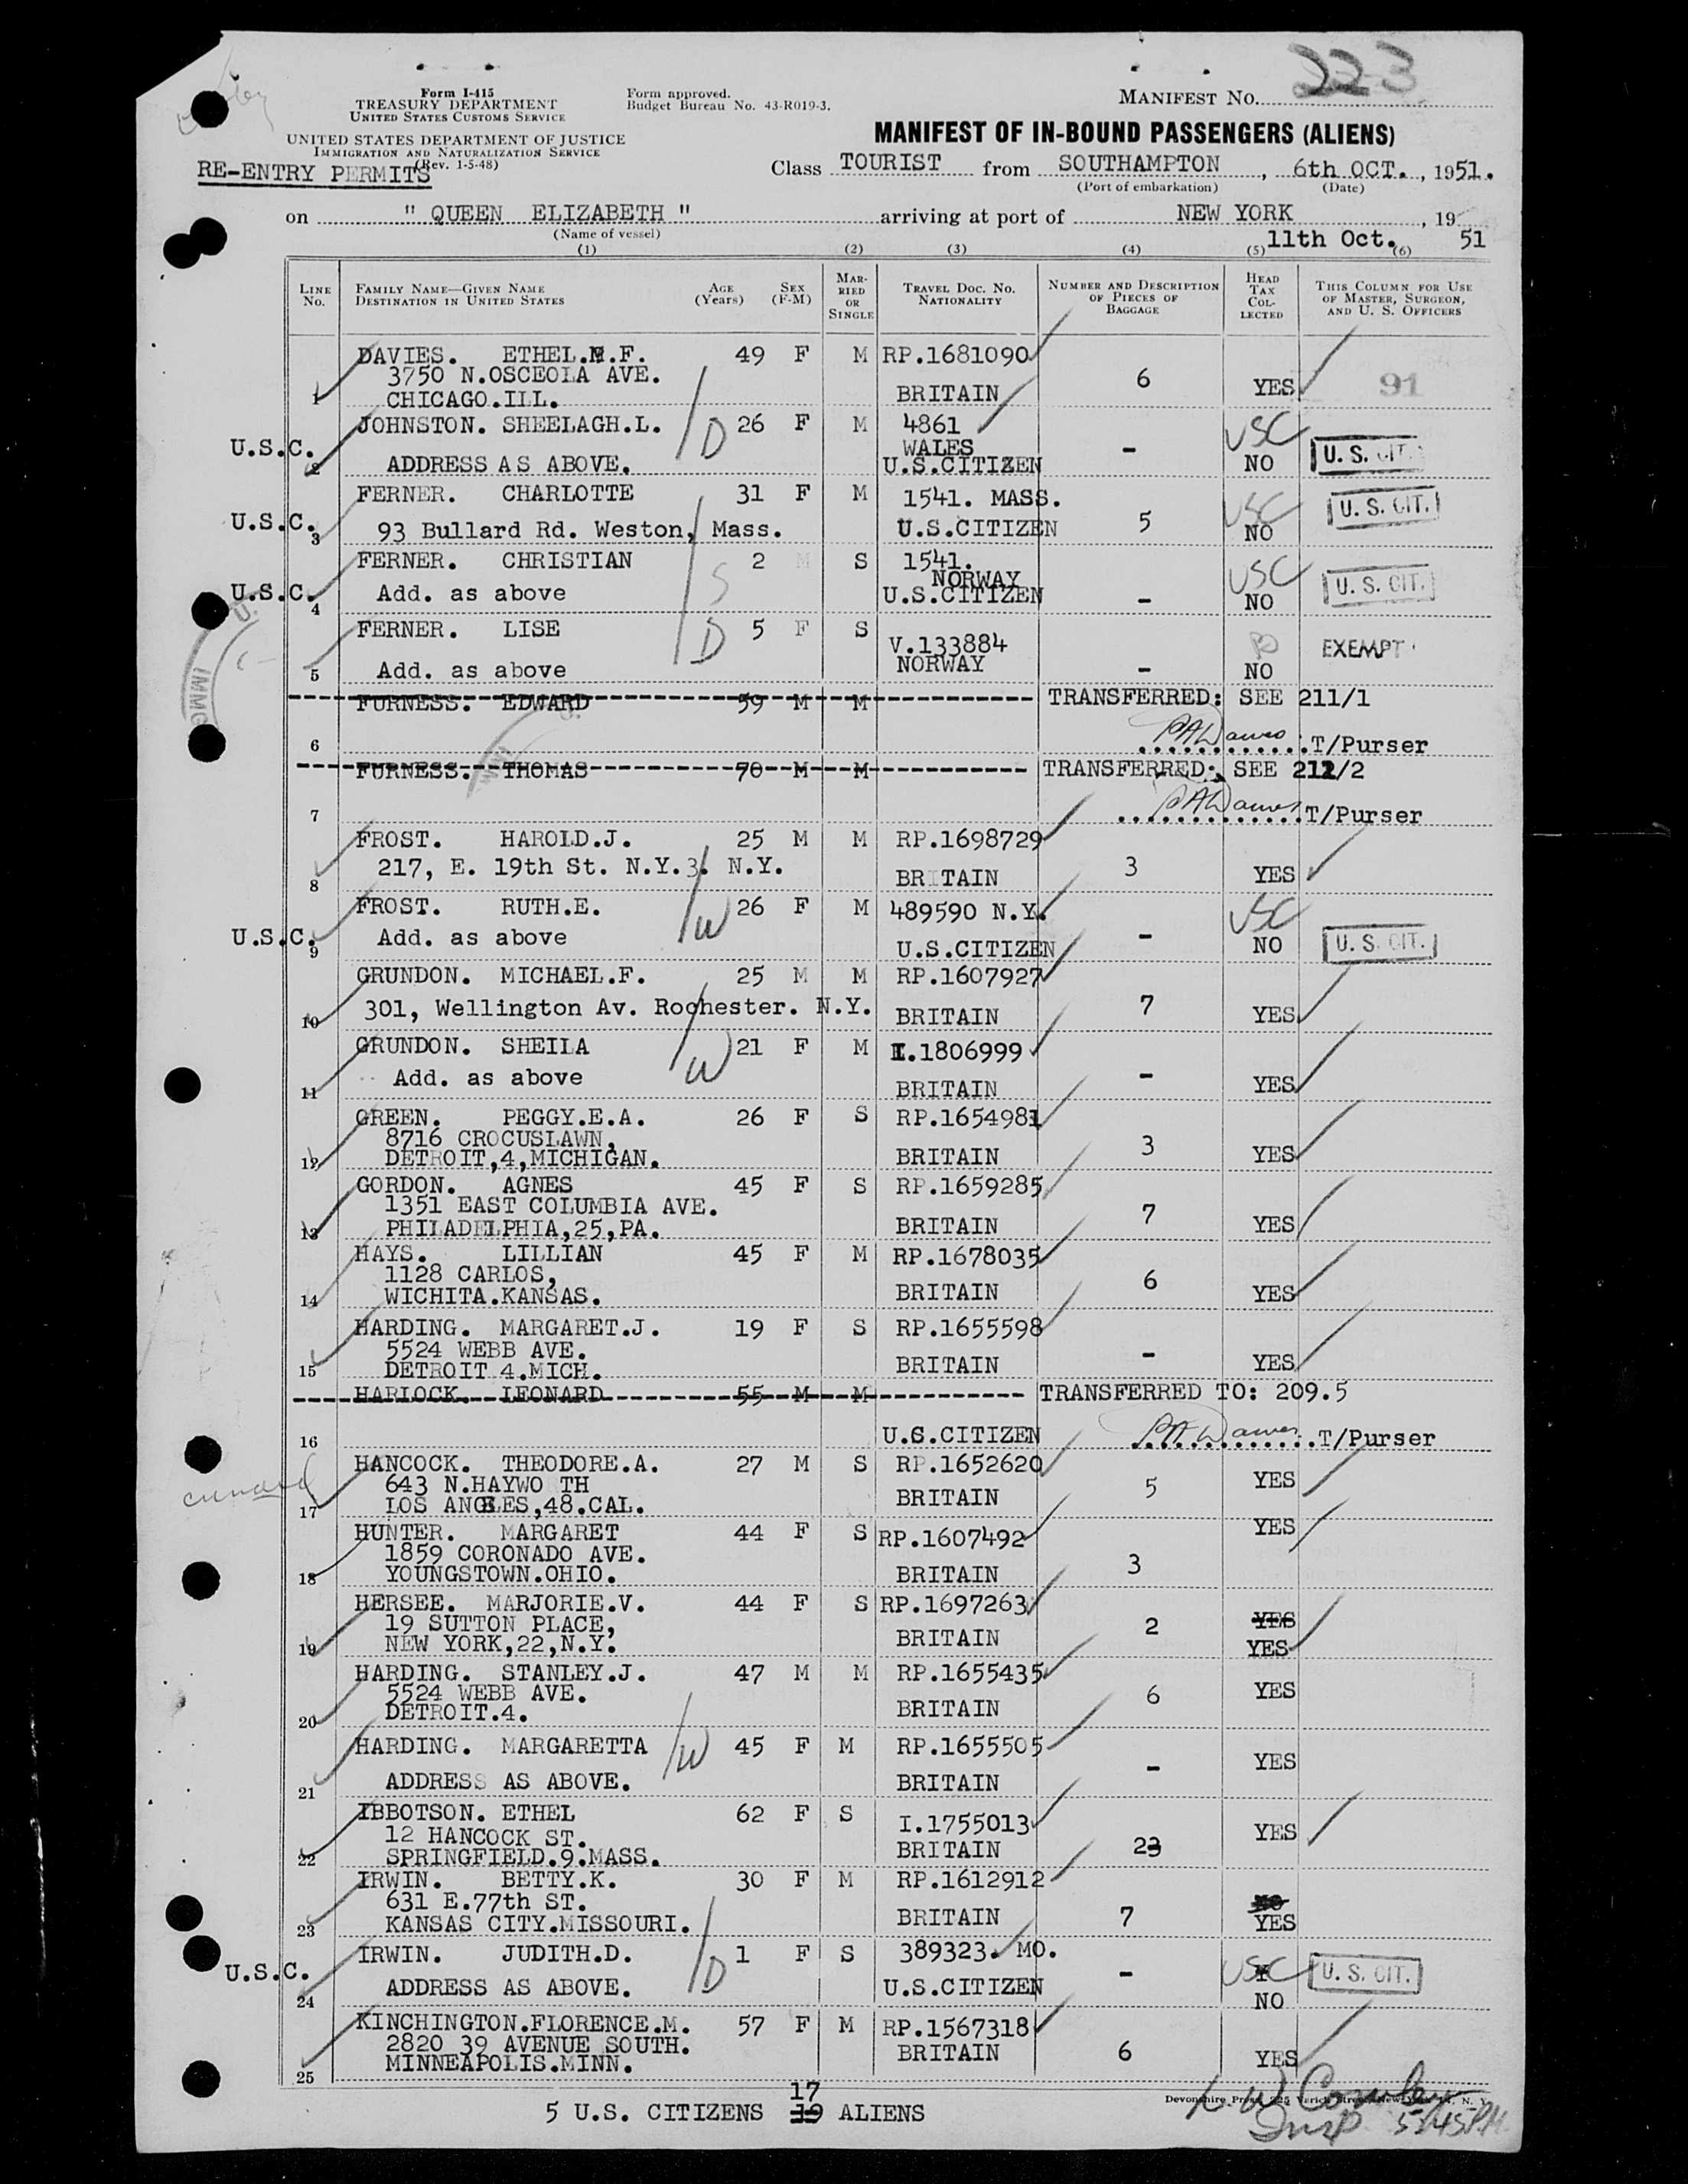 223
Form I-415
TREASURY DEPARTMENT
UNITED STATES CUSTOMS SERVICE
UNITED STATES DEPARTMENT OF JUSTICE
IMMIGRATION AND NATURALIZATION SERVICE
(Rev. 1-5-48)
RE-ENTRY PERMITS
Form approved.
Budget Bureau No. 43-R019-3.
MANIFEST NO.
MANIFEST OF IN-BOUND PASSENGERS (ALIENS)
Class TOURIST from SOUTHAMPTON, 6th OCT., 1951.
(Port of embarkation) (Date)
on " QUEEN ELIZABETH " arriving at port of NEW YORK, 19
(Name of vessel) 11th Oct. 51
(1) (2) (3) (4) (5) (6)
LINE No. FAMILY NAME—GIVEN NAME DESTINATION IN UNITED STATES AGE (Years) SEX (F-M) MARRIED OR SINGLE TRAVEL DOC. NO. NATIONALITY NUMBER AND DESCRIPTION OF PIECES OF BAGGAGE HEAD TAX COLLECTED THIS COLUMN FOR USE OF MASTER, SURGEON, AND U. S. OFFICERS
DAVIES. ETHEL.M.F. 49 F M RP.1681090
3750 N.OSCEOLA AVE. 6 YES 91
1 CHICAGO.ILL. BRITAIN
JOHNSTON. SHEELAGH.L. D 26 F M 4861 USC
U.S.C. WALES - U. S. CIT.
2 ADDRESS AS ABOVE. U.S.CITIZEN NO
FERNER. CHARLOTTE 31 F M 1541. MASS. USC U. S. CIT.
U.S.C. 3 93 Bullard Rd. Weston, Mass. U.S.CITIZEN 5 NO
FERNER. CHRISTIAN 2 M S 1541. USC
NORWAY U. S. CIT.
U.S.C. 4 Add. as above S U.S.CITIZEN - NO
FERNER. LISE D 5 F S V.133884
EXEMPT
5 Add. as above NORWAY - NO
FURNESS. EDWARD 59 M M TRANSFERRED: SEE 211/1
6 T/Purser
FURNESS. THOMAS 70 M M TRANSFERRED: SEE 211/2
7 T/Purser
FROST. HAROLD.J. 25 M M RP.1698729
8 217, E. 19th St. N.Y.3. N.Y. BRITAIN 3 YES
FROST. RUTH.E. W 26 F M 489590 N.Y. USC
U.S.C. 9 Add. as above U.S.CITIZEN - NO U. S. CIT.
GRUNDON. MICHAEL.F. 25 M M RP.1607927
10 301, Wellington Av. Rochester. N.Y. BRITAIN 7 YES
GRUNDON. SHEILA W 21 F M I.1806999
11 Add. as above BRITAIN - YES
GREEN. PEGGY.E.A. 26 F S RP.1654981
8716 CROCUSLAWN, 3
12 DETROIT,4,MICHIGAN. BRITAIN YES
GORDON. AGNES 45 F S RP.1659285
1351 EAST COLUMBIA AVE. 7
13 PHILADELPHIA,25,PA. BRITAIN YES
HAYS. LILLIAN 45 F M RP.1678035
1128 CARLOS, 6
14 WICHITA.KANSAS. BRITAIN YES
HARDING. MARGARET.J. 19 F S RP.1655598
5524 WEBB AVE. -
15 DETROIT 4.MICH. BRITAIN YES
HARLOCK. LEONARD 55 M M TRANSFERRED TO: 209.5
16 U.S.CITIZEN T/Purser
HANCOCK. THEODORE.A. 27 M S RP.1652620 YES
cunard 643 N.HAYWO TH 5
17 LOS ANGELES,48.CAL. BRITAIN
HUNTER. MARGARET 44 F S RP.1607492 YES
1859 CORONADO AVE. 3
18 YOUNGSTOWN.OHIO. BRITAIN
HERSEE. MARJORIE.V. 44 F S RP.1697263 YES
19 SUTTON PLACE, 2
19 NEW YORK,22,N.Y. BRITAIN YES
HARDING. STANLEY.J. 47 M M RP.1655435
5524 WEBB AVE. 6 YES
20 DETROIT.4. BRITAIN
HARDING. MARGARETTA W 45 F M RP.1655505
21 ADDRESS AS ABOVE. BRITAIN - YES
IBBOTSON. ETHEL 62 F S I.1755013
12 HANCOCK ST. YES
22 SPRINGFIELD.9.MASS. BRITAIN 23
IRWIN. BETTY.K. 30 F M RP.1612912
631 E.77th ST. NO
23 KANSAS CITY.MISSOURI. BRITAIN 7 YES
IRWIN. JUDITH.D. D 1 F S 389323. MO.
U.S.C. USC U. S. CIT.
24 ADDRESS AS ABOVE. U.S.CITIZEN - NO
KINCHINGTON.FLORENCE.M. 57 F M RP.1567318
2820 39 AVENUE SOUTH. BRITAIN 6 YES
25 MINNEAPOLIS.MINN.
17
5 U.S. CITIZENS 19 ALIENS
Insp 5:45P.M.